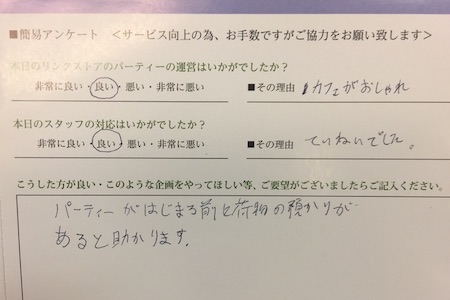 ■簡易アンケート　＜サービス向上の為、お手数ですがご協力をお願い致します＞
本日のリンクストアのパーティーの運営はいかがでしたか？
非常に良い・良い・悪い・非常に悪い　■その理由　カフェがおしゃれ
本日のスタッフの対応はいかがでしたか？
非常に良い・良い・悪い・非常に悪い　■その理由　ていねいでした。
こうした方が良い・このような企画をやってほしい等、ご要望がございましたらご記入ください。
パーティーがはじまる前に荷物の預かりが
あると助かります。